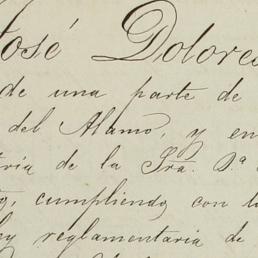 José Dolores
de una parte de
del Alamo, y en
de la Sra. D.ª
cumpliendo con
reglamentaria de